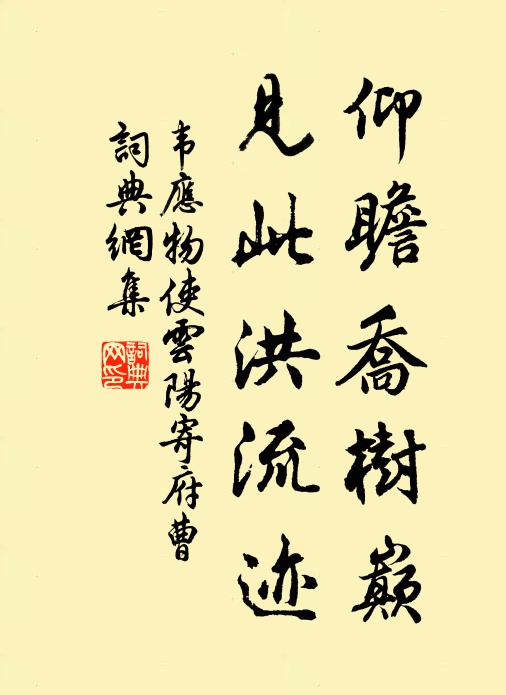 仰瞻喬樹巔
見此洪流迹
韦應物使雲陽寄府曹
詞典網集
詞典网印